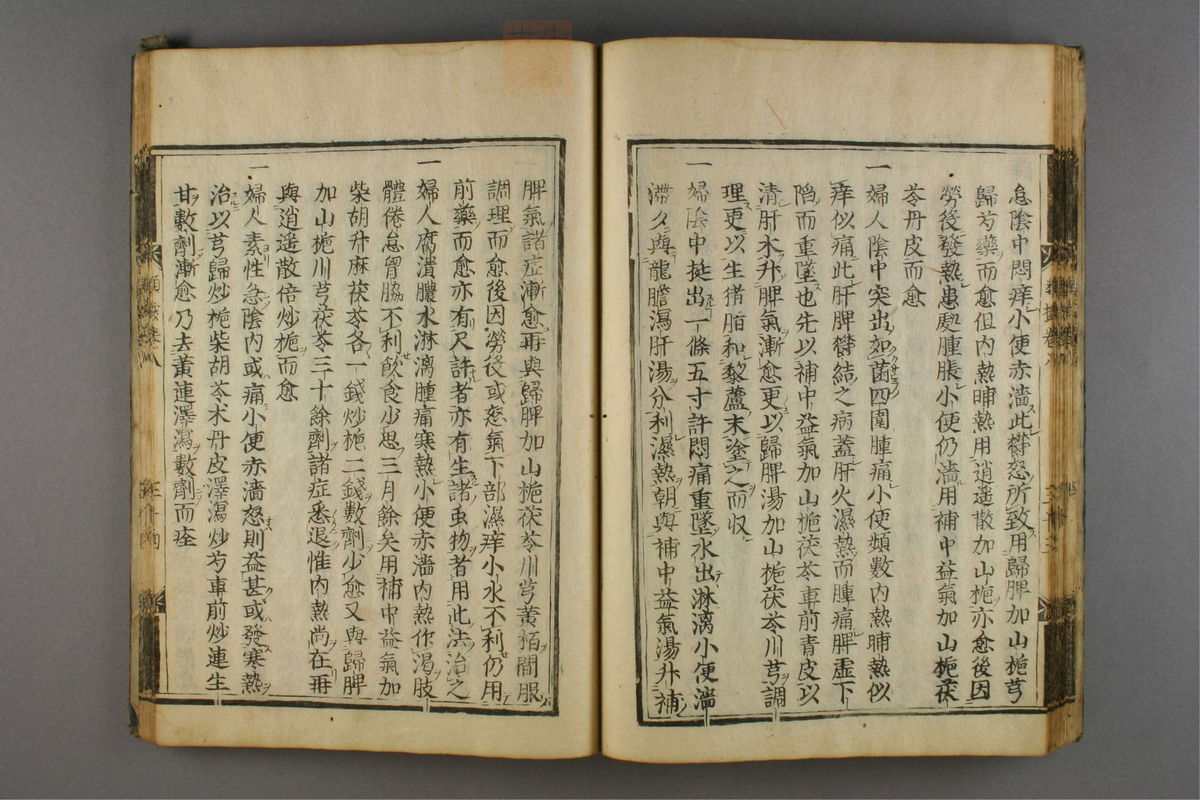 怠陰中悶痒小便赤濇此欝怒所致用歸脾加山梔芎
歸芍藥而愈但内熱晡熱用逍遙散加山梔亦愈後因
勞後發熱患處腫脹小便仍濇用補中益氣加山梔茯
苓丹皮而愈
一
婦人陰中突出如菌四圍腫痛小便頻數内熱晡熱似
痒似痛此肝脾欝結之病蓋肝火濕熱而腫痛脾虛下
陷而重墜也先以補中益氣加山梔茯苓車前青皮以
清肝火升脾氣漸愈更以歸脾湯加山梔茯苓川芎調
理更以生猪脂和藜蘆末塗之而収
一
婦陰中挺出一條五寸許悶痛重墜水出淋漓小便濇
滯夕與龍膽瀉肝湯分利濕熱朝與補中益氣湯升補
脾氣諸症漸愈再與歸脾加山梔茯苓川芎黃栢間服
調理而愈後因勞役或怒氣下部濕痒小水不利仍用
前藥而愈亦有尺許者亦有生諸虫物者用此法治之
一
婦人腐潰膿水淋漓腫痛寒熱小便赤濇内熱作渴肢
體倦怠胷脇不利飲食少思三月餘矣用補中益氣加
柴胡升麻茯苓各一錢炒梔二錢數劑少愈又與歸脾
加山梔川芎茯苓三十餘劑諸症悉退惟内熱尚在再
與逍遙散倍炒梔而愈
一
婦人素性急陰内或痛小便赤濇怒則益甚或發寒熱
治以芎歸炒梔柴胡苓术丹皮澤瀉炒芍車前炒連生
甘數劑漸愈乃去黃連澤瀉數劑而痊
卷八